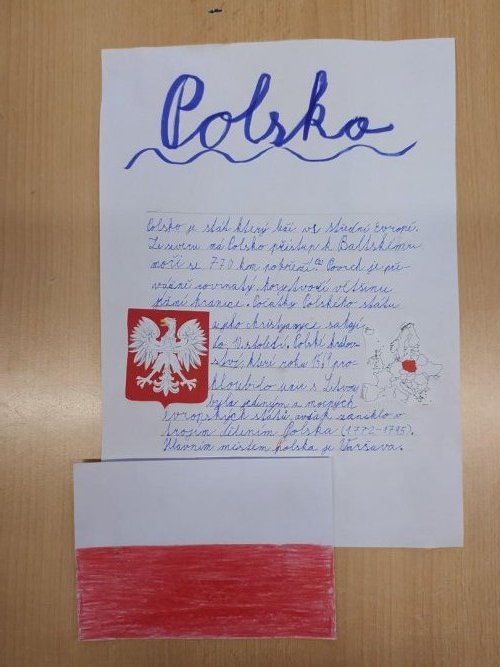 Polsko
Polsko je stát který leží ve střední Evropě.
Ze severu má Polsko přístup k Baltskému
moři se 770 km pobřeží. Povrch je pře
vážně rovinatý, horstvo tvoří většinu
jižní hranice. Počátky Polského státu
jako křisťanyce sahají
do 10 století. Polské králov
ství, které roku 1569 pro
hloubilo unii s Litvou
bylo jedním z mocných
Evropských států, avšak zaniklo v
trojím dělením Polska (1772-1795).
Hlavním městem polska je Varšava.